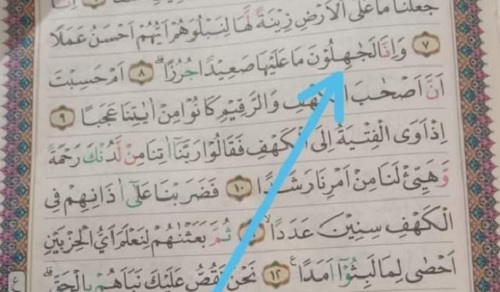 جَعَلْنَا مَا عَلَى الْاَرْضِ زِيْنَةً لَّهَا لِنَبْلُوَهُمْ اَيُّهُمْ اَحْسَنُ عَمَلًا
٧ وَاِنَّا لَجٰهِلُوْنَ مَا عَلَيْهَا صَعِيْدًا جُرُزًاۗ ٨ اَمْ حَسِبْتَ
اَنَّ اَصْحٰبَ الْكَهْفِ وَالرَّقِيْمِ كَانُوْا مِنْ اٰيٰتِنَا عَجَبًا ٩
اِذْ اَوَى الْفِتْيَةُ اِلَى الْكَهْفِ فَقَالُوْا رَبَّنَآ اٰتِنَا مِنْ لَّدُنْكَ رَحْمَةً
وَّهَيِّئْ لَنَا مِنْ اَمْرِنَا رَشَدًا ١٠ فَضَرَبْنَا عَلٰٓى اٰذَانِهِمْ فِى
الْكَهْفِ سِنِيْنَ عَدَدًاۙ ١١ ثُمَّ بَعَثْنٰهُمْ لِنَعْلَمَ اَيُّ الْحِزْبَيْنِ
اَحْصٰى لِمَا لَبِثُوْٓا اَمَدًا ١٢ نَحْنُ نَقُصُّ عَلَيْكَ نَبَاَهُمْ بِالْحَقِّۗ